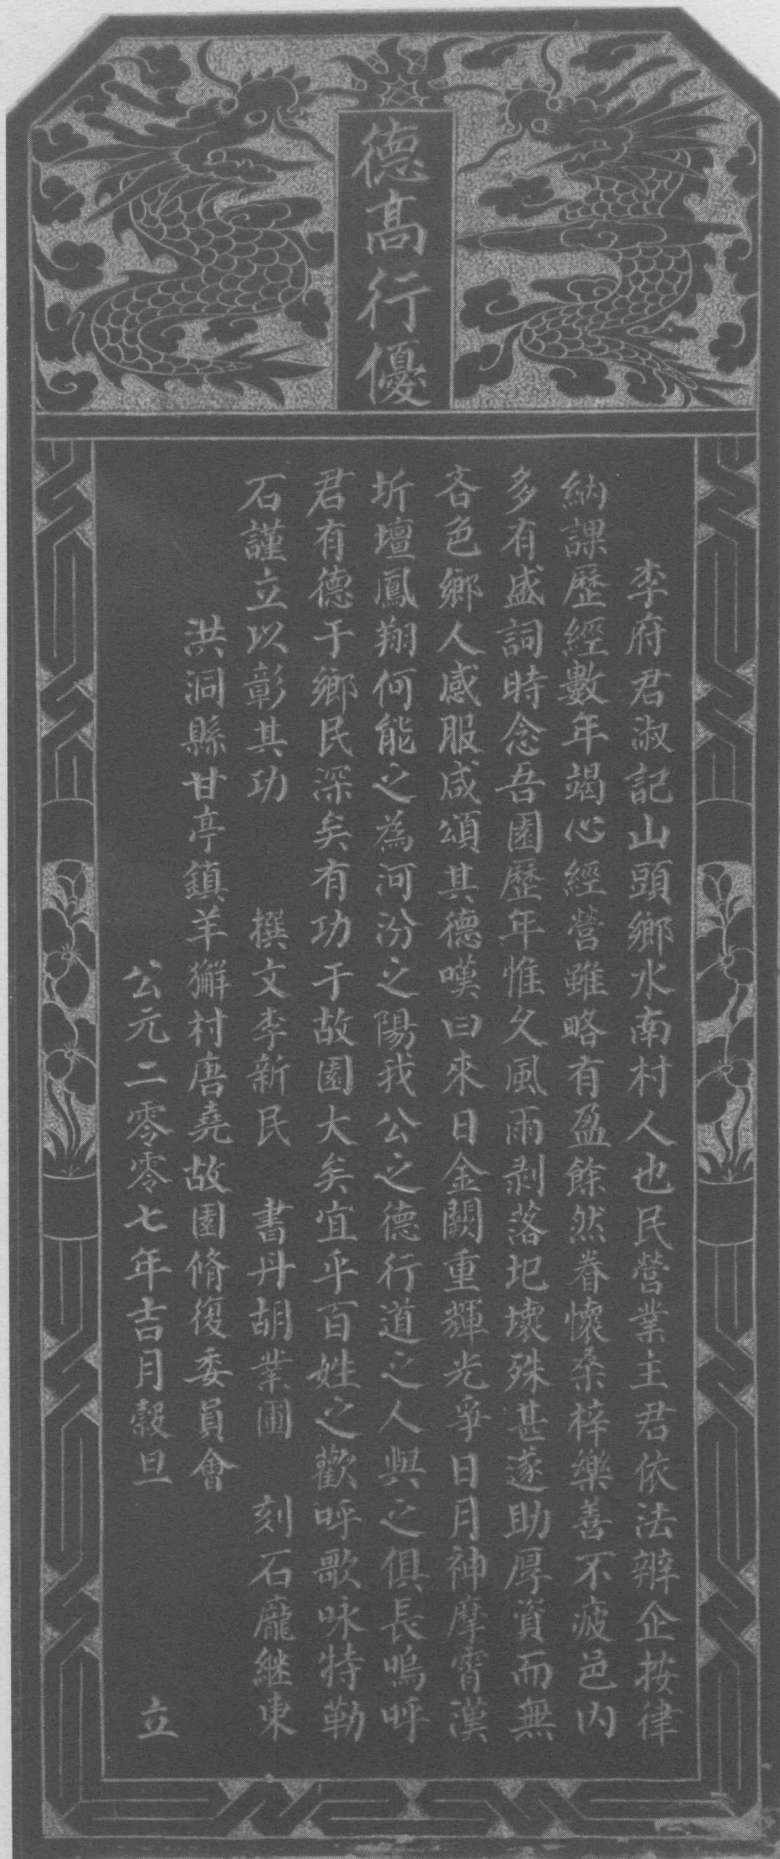 德高行優
李府君淑記山頭鄉水南村人也民營業主君依法辦企按律
納課歷經數年竭心經營雖略有盈餘然眷懷桑梓樂善不疲邑內
多有盛詞時念吾園歷年惟久風雨剥落圮壞殊甚遂助厚資而無
吝色鄉人感服咸頌其德嘆曰來日金闕重輝光爭日月神摩霄漢
圻壇鳳翔何能之為河汾之陽我公之德行道之人與之俱長嗚呼
君有德于鄉民深矣有功于故園大矣宜乎百姓之歡呼歌咏特勒
石謹立以彰其功 撰文李新民 書丹胡業圃 刻石龐継東
洪洞縣甘亭鎮羊獬村唐堯故園脩復委員會
公元二零零七年吉月穀旦 立